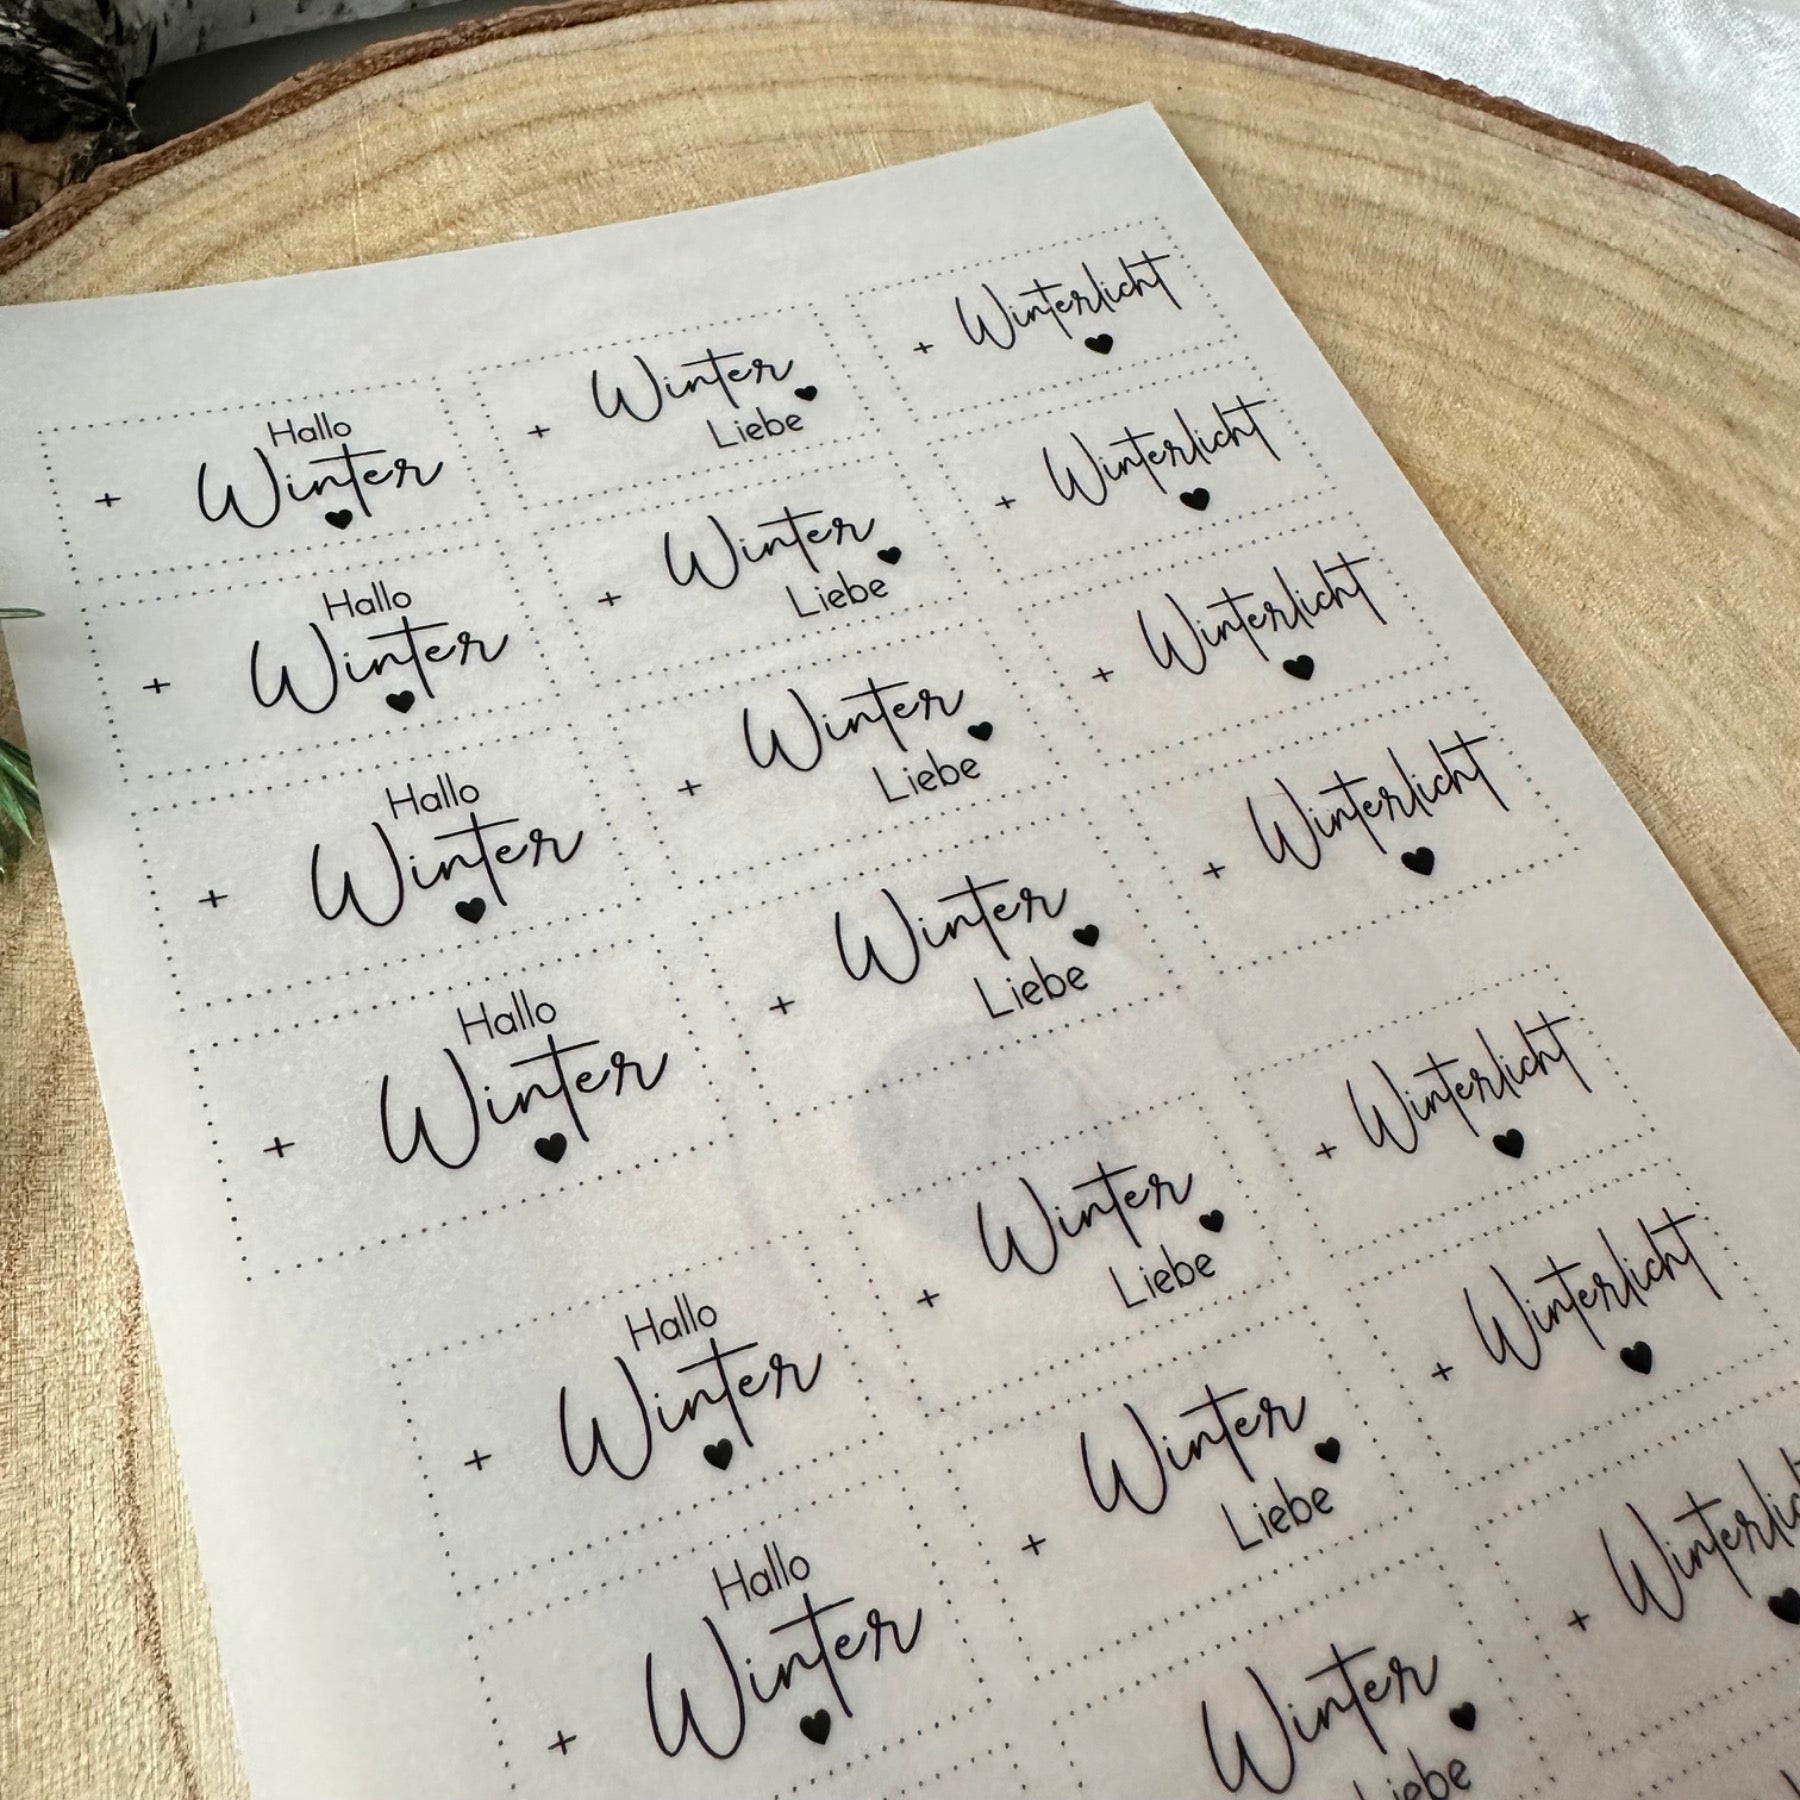 Hallo
Winter
+
Winter
Liebe
+
Winterlicht
+
Hallo
Winter
+
Winter
Liebe
+
Winterlicht
+
Hallo
Winter
+
Winter
Liebe
+
Winterlicht
+
Hallo
Winter
+
Winter
Liebe
+
Winterlicht
+
Hallo
Winter
+
Winter
Liebe
+
Winterlicht
+
Hallo
Winter
+
Winter
Liebe
+
Winterlicht
+
Winter
Liebe
+